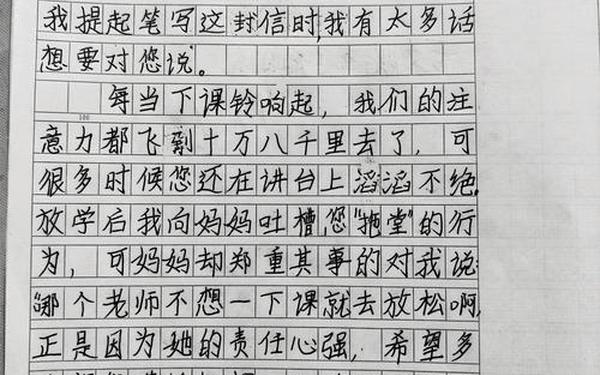 我提起笔写这封信时,我有太多话
想要对您说。
每当下课铃响起，我们的注
意力都飞到十万八千里去了，可
很多时候您还在讲台上滔滔不绝。
放学后我向妈妈吐槽您"拖堂"的行
为，可妈妈却郑重其事的对我说:
"哪个老师不想一下课就去放松啊,
正是因为她的责任心强，希望多